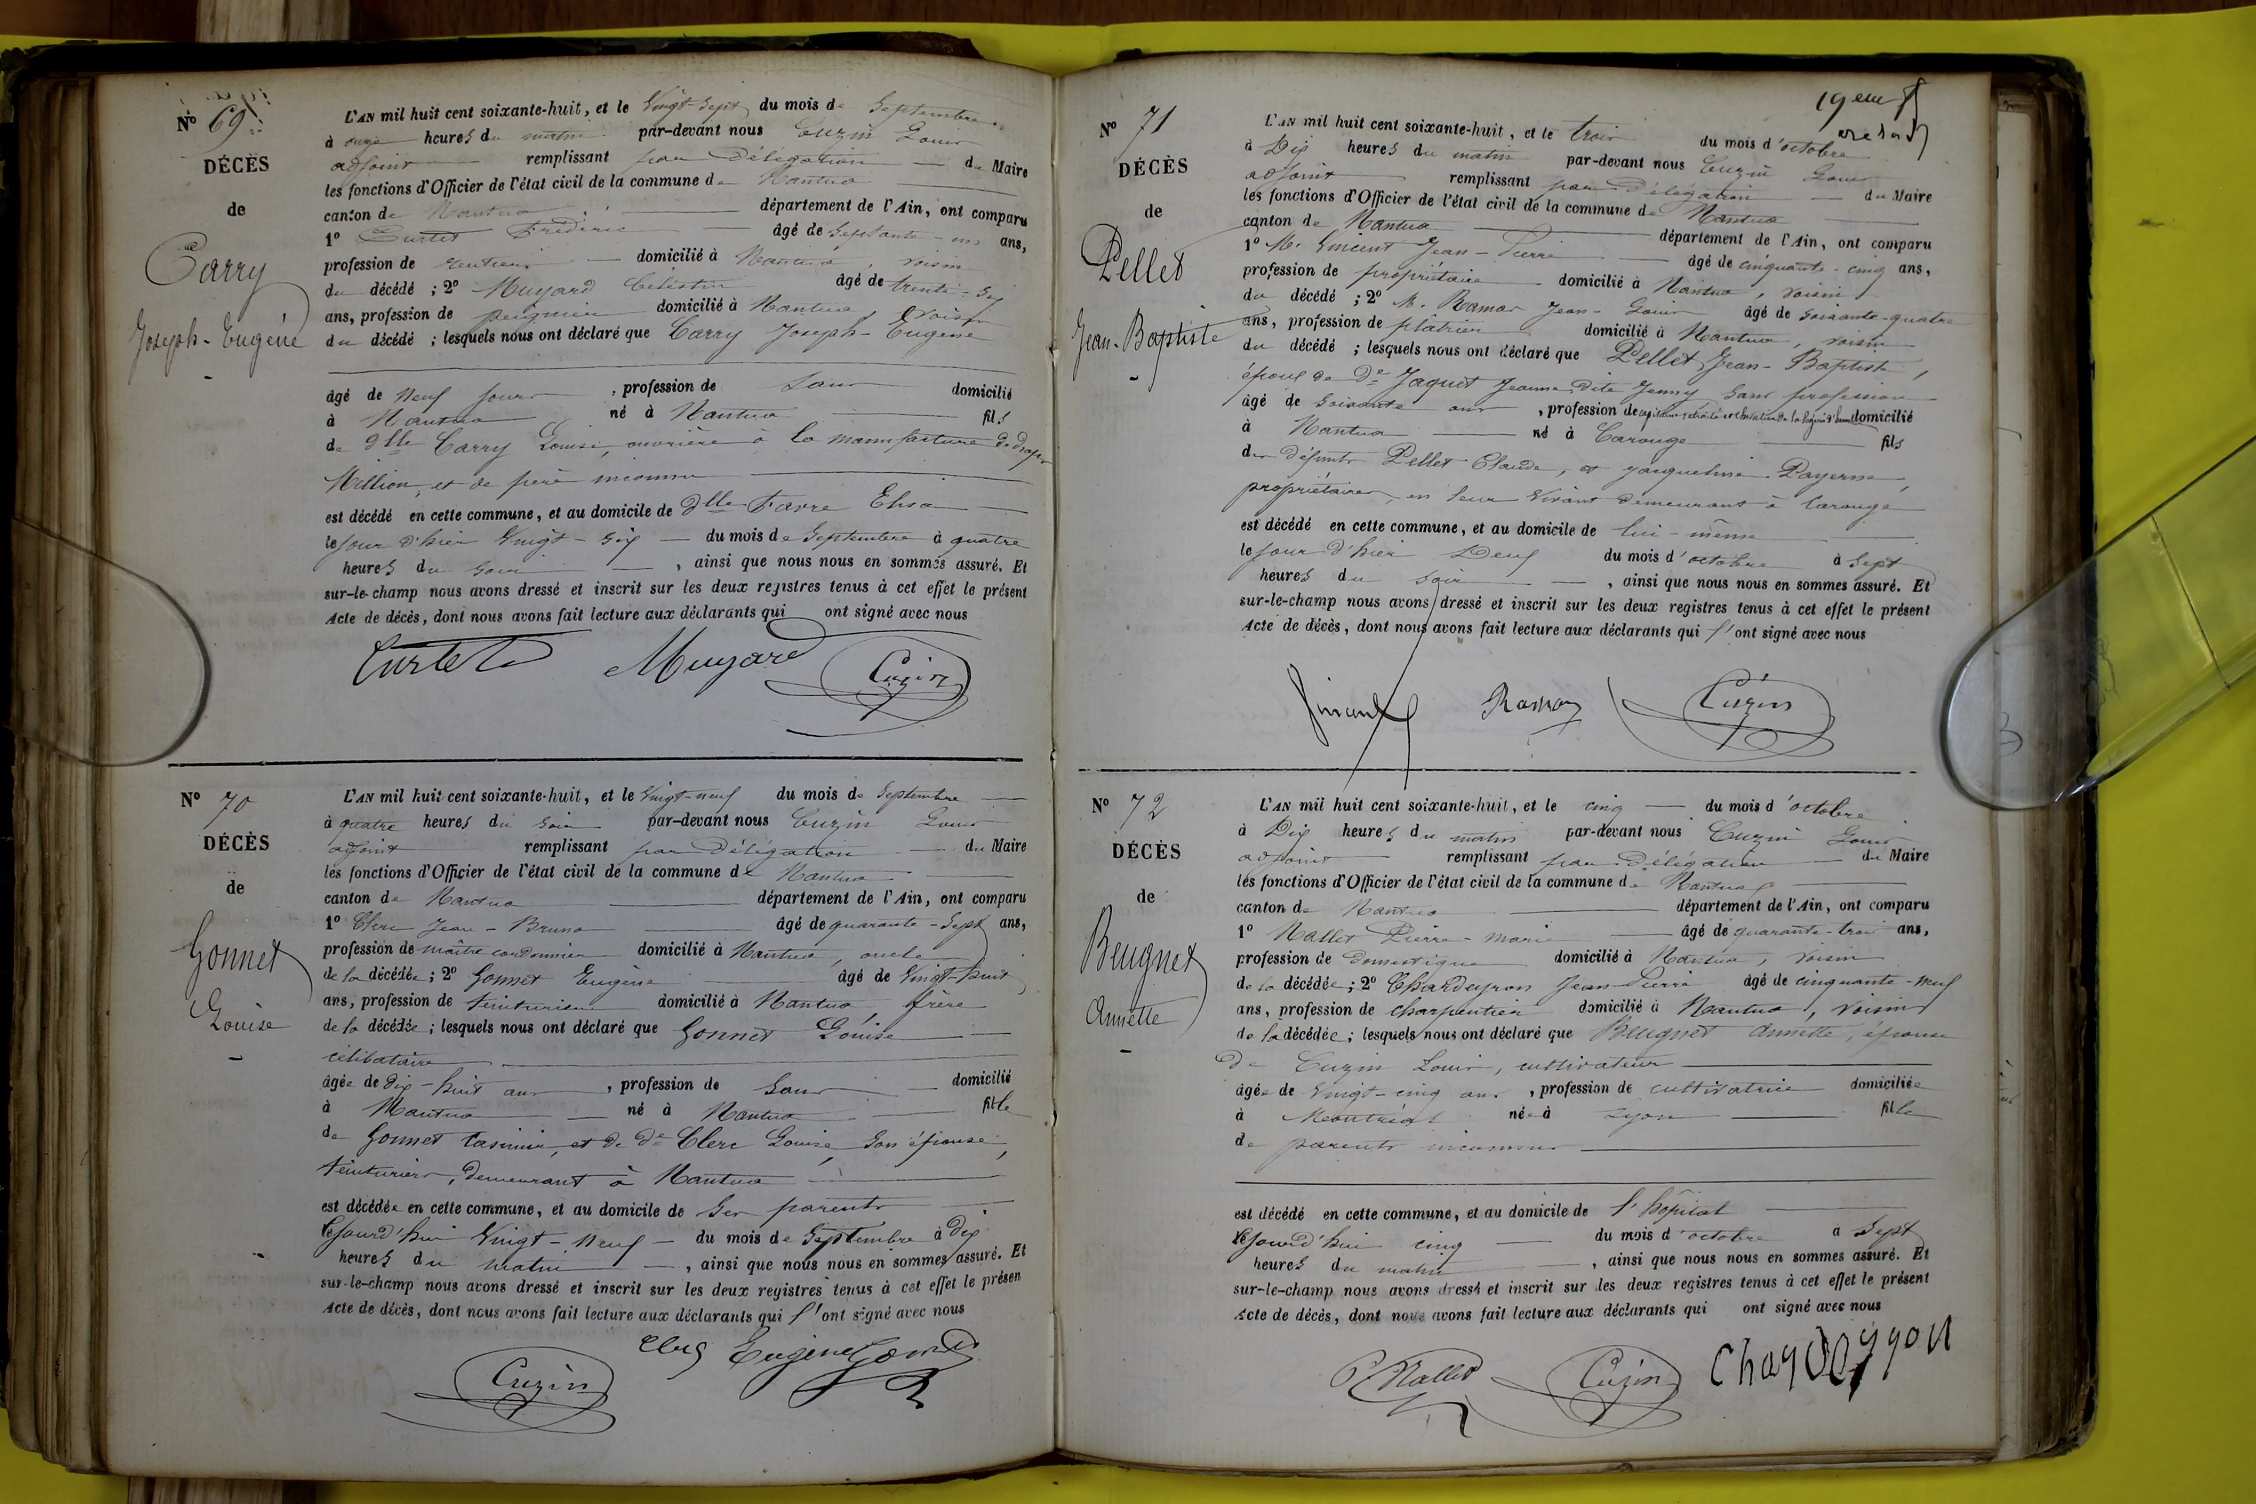 Nº 69
DÉCÈS
de
Carry
Joseph-Eugéne
L'AN mil huit cent soixante-huit, et le Vingt-Sept du mois de Septembre
à onze heures du matin par-devant nous Cuzin Louis
adjoint remplissant par Délégation du Maire
les fonctions d'Officier de l'état civil de la commune de Nantua
canton de Nantua département de l'Ain, ont comparu
1º Curtet Frédéric âgé de Septante-un ans,
profession de rentier domicilié à Nantua, voisin
du décédé ; 2º Muyard Célestin âgé de trente-Six
ans, profession de peignier domicilié à Nantua, voisin
du décédé ; lesquels nous ont déclaré que Carry Joseph-Eugène
âgé de Neuf jours , profession de Sans domicilié
à Nantua né à Nantua fils
de Dlle Carry Louise, ouvrière à la manufacture de draps
Million, et de père inconnu
est décédé en cette commune, et au domicile de Dlle Favre Elisa
le jour d'hier Vingt-Six du mois de Septembre à quatre
heures du Soir , ainsi que nous nous en sommes assuré. Et
sur-le-champ nous avons dressé et inscrit sur les deux registres tenus à cet effet le présent
Acte de décès, dont nous avons fait lecture aux déclarants qui ont signé avec nous
Curtet Muyard Cuzin
Nº 70
DÉCÈS
de
Gonnet
Louise
L'AN mil huit cent soixante-huit, et le Vingt-neuf du mois de Septembre
à quatre heures du Soir par-devant nous Cuzin Louis
adjoint remplissant par Délégation du Maire
les fonctions d'Officier de l'état civil de la commune de Nantua
canton de Nantua département de l'Ain, ont comparu
1º Clerc Jean-Bruno âgé de quarante-Sept ans,
profession de maître cordonnier domicilié à Nantua, oncle
de la décédée ; 2º Gonnet Eugène âgé de Vingt-huit
ans, profession de teinturier domicilié à Nantua, frère
de la décédée ; lesquels nous ont déclaré que Gonnet Louise
célibataire
âgée de Dix-huit ans , profession de Sans domicilié
à Nantua né à Nantua fille
de Gonnet Casimir, et de De Clerc Louise, Son épouse,
teinturiers, demeurant à Nantua
est décédée en cette commune, et au domicile de Ses parents
le jourd'hui Vingt-Neuf du mois de Septembre à Dix
heures du matin , ainsi que nous nous en sommes assuré. Et
sur-le-champ nous avons dressé et inscrit sur les deux registres tenus à cet effet le présen
Acte de décès, dont nous avons fait lecture aux déclarants qui l'ont signé avec nous
Clerc Eugène Gonnet
Cuzin
19 eme
Nº 71
DÉCÈS
de
Pellet
Jean-Baptiste
L'AN mil huit cent soixante-huit, et le trois du mois d'octobre
à Dix heures du matin par-devant nous Cuzin Louis
adjoint remplissant par Délégation du Maire
les fonctions d'Officier de l'état civil de la commune de Nantua
canton de Nantua département de l'Ain, ont comparu
1º Mr Vincent Jean-Pierre âgé de cinquante-cinq ans,
profession de propriétaire domicilié à Nantua, voisin
du décédé ; 2º Mr Ramas Jean-Louis âgé de soixante-quatre
ans, profession de plâtrier domicilié à Nantua, voisin
du décédé ; lesquels nous ont déclaré que Pellet Jean-Baptiste,
époux de De Jaquet Jeanne dite Jenny Sans profession
âgé de Soixante ans , profession de capitaine retraité et chevalier de la légion d'honneur domicilié
à Nantua né à Carouge fils
des défunts Pellet Claude, et Jacqueline Payerne,
propriétaires, en leur vivant demeurant à Carouge
est décédé en cette commune, et au domicile de lui-même
le jour d'hier Deux du mois d'octobre à Sept
heures du Soir , ainsi que nous nous en sommes assuré. Et
sur-le-champ nous avons dressé et inscrit sur les deux registres tenus à cet effet le présent
Acte de décès, dont nous avons fait lecture aux déclarants qui l'ont signé avec nous
Vincent Ramas Cuzin
Nº 72
DÉCÈS
de
Beugnet
Annette
L'AN mil huit cent soixante-huit, et le cinq du mois d'octobre
à Dix heures du matin par-devant nous Cuzin Louis
adjoint remplissant par Délégation du Maire
les fonctions d'Officier de l'état civil de la commune de Nantua
canton de Nantua département de l'Ain, ont comparu
1º Nallet Pierre-marie âgé de quarante-trois ans,
profession de Domestique domicilié à Nantua, voisin
de la décédée ; 2º Chardeyron Jean-Pierre âgé de cinquante-neuf
ans, profession de charpentier domicilié à Nantua, voisin
de la décédée ; lesquels nous ont déclaré que Beugnet Annette, épouse
De Cuzin Louis, cultivateur
âgée de Vingt-cinq ans , profession de cultivatrice domiciliée
à Montréal née à Lyon fille
de parents inconnus
est décédé en cette commune, et au domicile de l'hôpital
le jourd'hui cinq du mois d'octobre à Sept
heures du matin , ainsi que nous nous en sommes assuré. Et
sur-le-champ nous avons dressé et inscrit sur les deux registres tenus à cet effet le présent
Acte de décès, dont nous avons fait lecture aux déclarants qui ont signé avec nous
P Nallet Cuzin Chardeyron